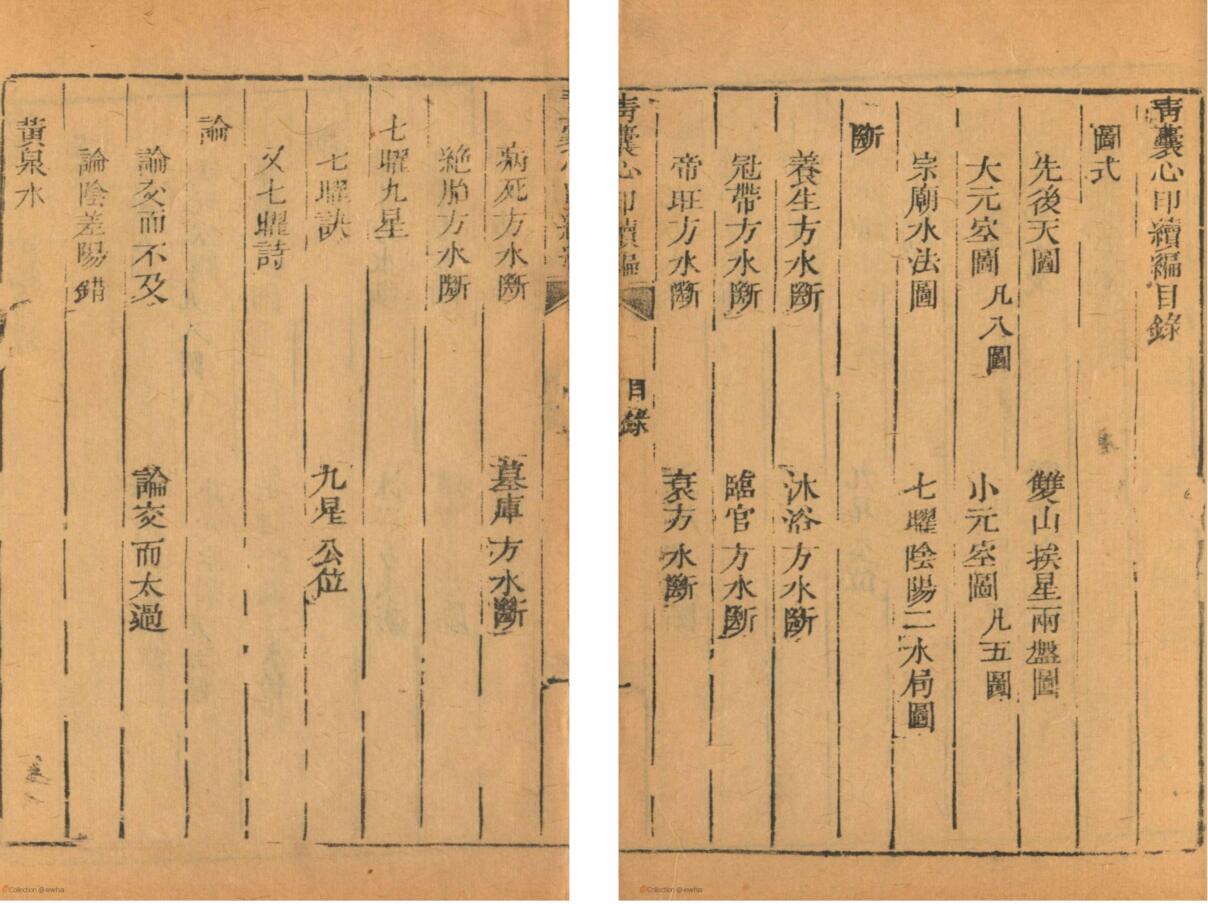 靑囊心印續編目錄
圖式
先後天圖 雙山挨星兩盤圖
大元空圖 凡八圖 小元空圖 凡五圖
宗廟水法圖 七曜陰陽二水局圖
斷
養生方水斷 沐浴方水斷
冠帶方水斷 臨官方水斷
帝旺方水斷 衰方水斷
靑囊心印續編 目錄
病死方水斷 墓庫方水斷
絕胎方水斷
七曜九星
七曜訣 九星公位
又七曜詩
論
論交而不及 論交而太過
論陰差陽錯
黃泉水
Collection @ ewha
Collection @ ewha